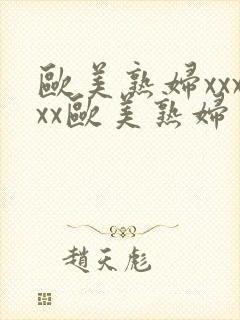 歐美熟婦xxx
xx歐美熟婦
趙天彪